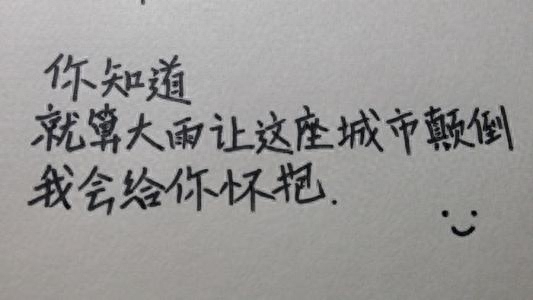 你知道
就算大雨让这座城市颠倒
我会给你怀抱.